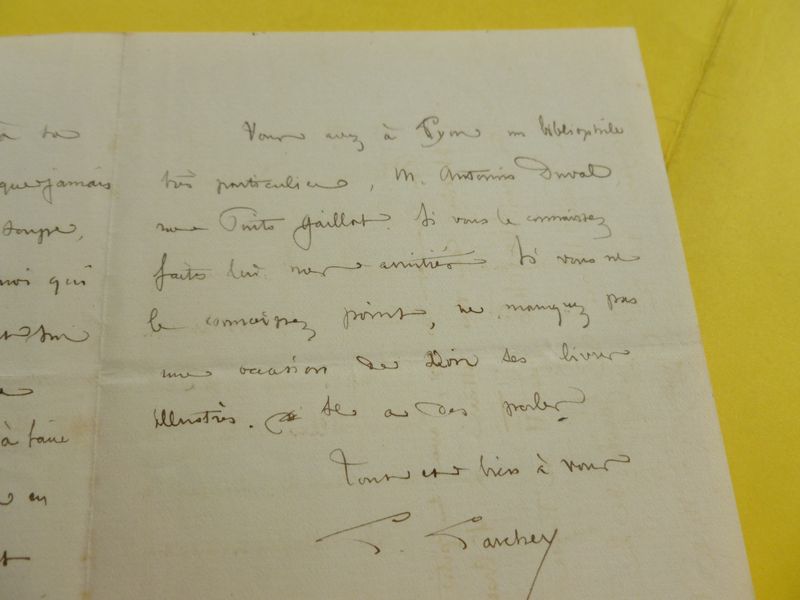 à sa
que jamais
soupe,
moi qui
et sur
à faire
en
Vous avez à Lyon un bibliophile
très particulier, M. Antonin Duval
rue Puits Gaillot. Si vous le connaissez
faites lui mes amitiés. Si vous ne
le connaissez point, ne manquez pas
une occasion de voir ses livres
illustrés. Il a des perles.
Tout et bien à vous